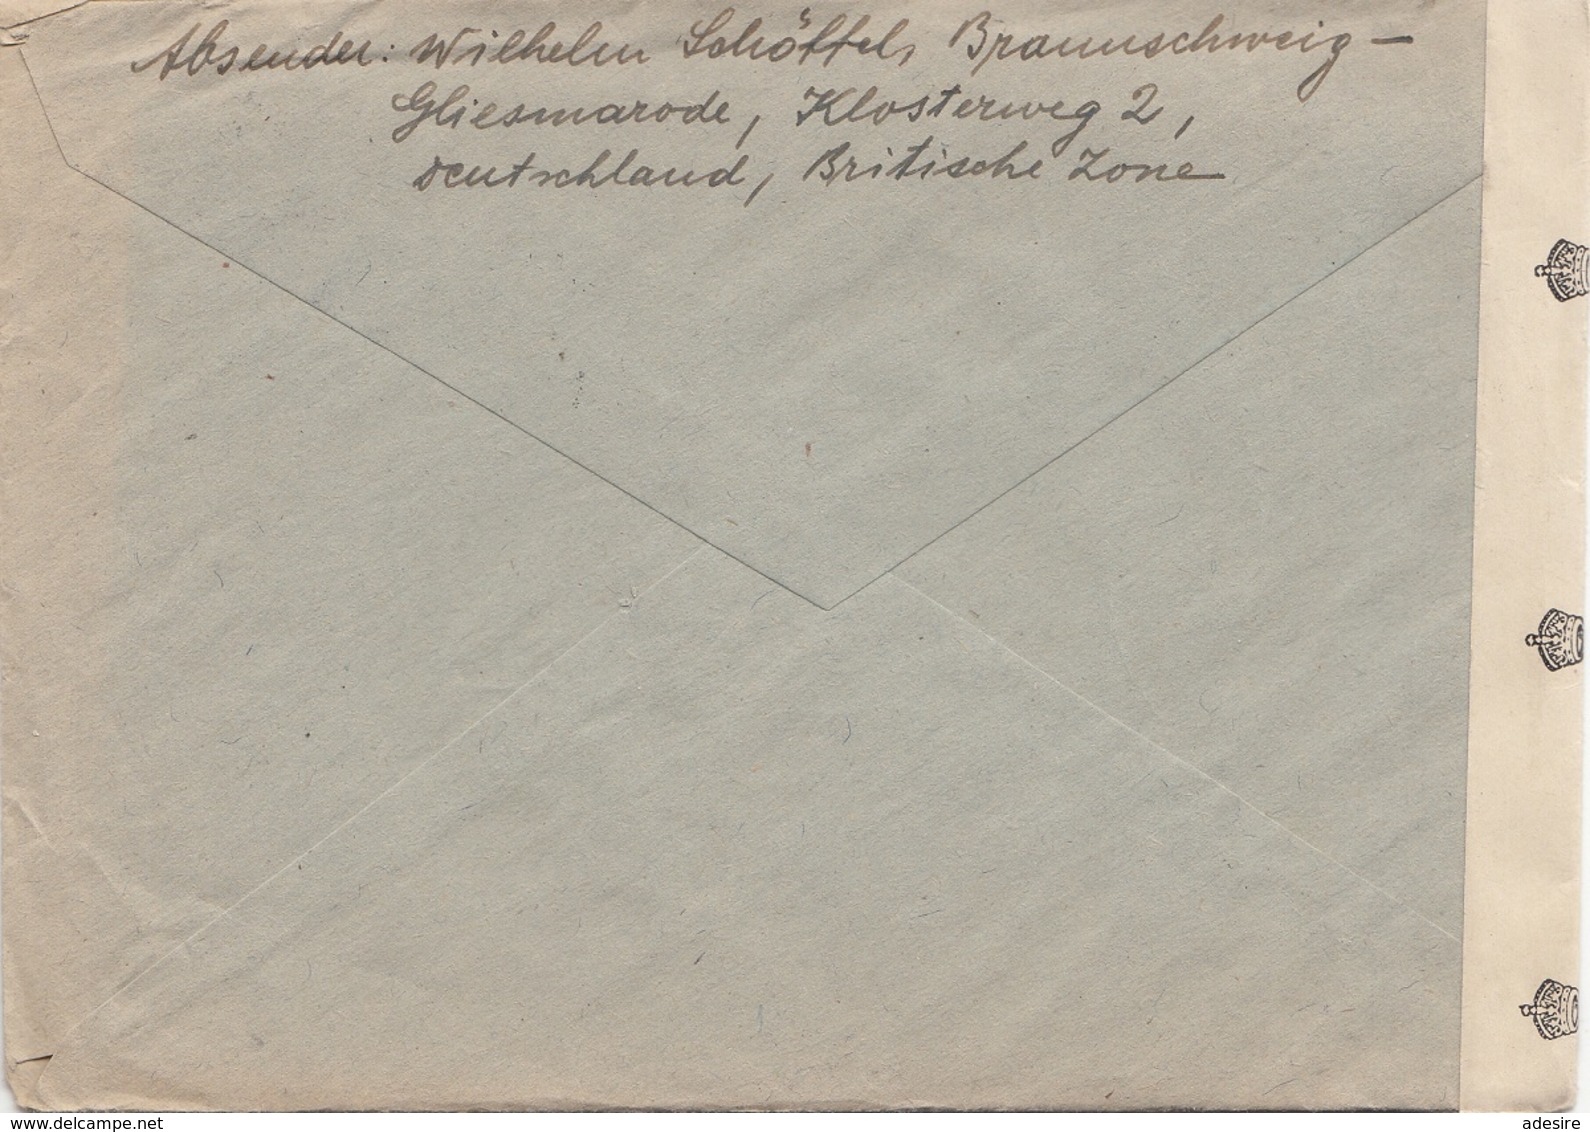 Absender: Wilhelm Schöffel, Braunschweig –
Gliesmarode, Klosterweg 2,
Deutschland, Britische Zone
www.delcampe.net
adesire